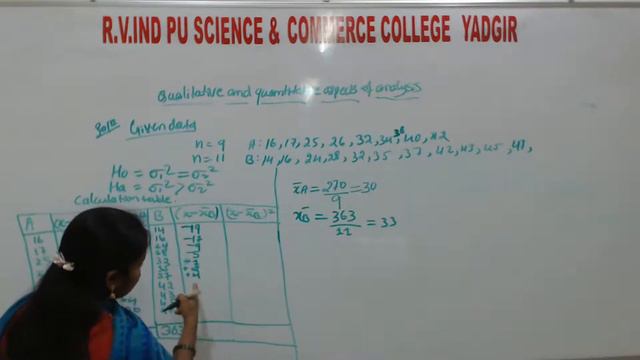 R.V.IND PU SCIENCE & COMMERCE COLLEGE YADGIR
Qualitative and quantitative aspects of analysis
Soln Given data
n = 9 A: 16, 17, 25, 26, 32, 34, 38, 40, 42
n = 11 B: 14, 16, 24, 28, 32, 35, 37, 42, 43, 45, 47,
Ho = σ₁² = σ₂²
Ha = σ₁² > σ₂²
Calculation table
x̄A = 270/9 = 30
x̄B = 363/11 = 33
A B (x-x̄B) (x-x̄B)²
16 14 -19
17 16 -17
24 -9
28 -5
32
35
37
42
43
363